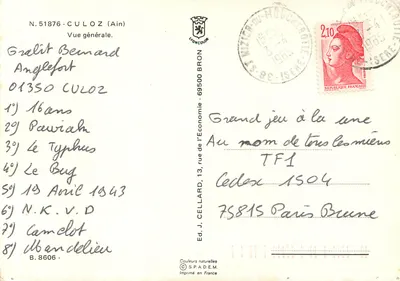 N. 51876 - CULOZ (Ain)
Vue générale.
Gralit Bernard
Anglefort
01350 CULOZ
1º) 16 ans
2º) Pawiak
3º) Le Typhus
4º) Le Bug
5º) 19 Avril 1943
6º) N.K.V.D
7º) Camelot
8º) Mandelieu
B. 8606 -
COMBIER
Ed. J. CELLARD, 13, rue de l'Economie - 69500 BRON
Couleurs naturelles
© S.P.A.D.E.M.
Imprimé en France
2,10
Grand jeu à la une
Au nom de tous les miens
TF1
Cedex 1504
75815 Paris Brune